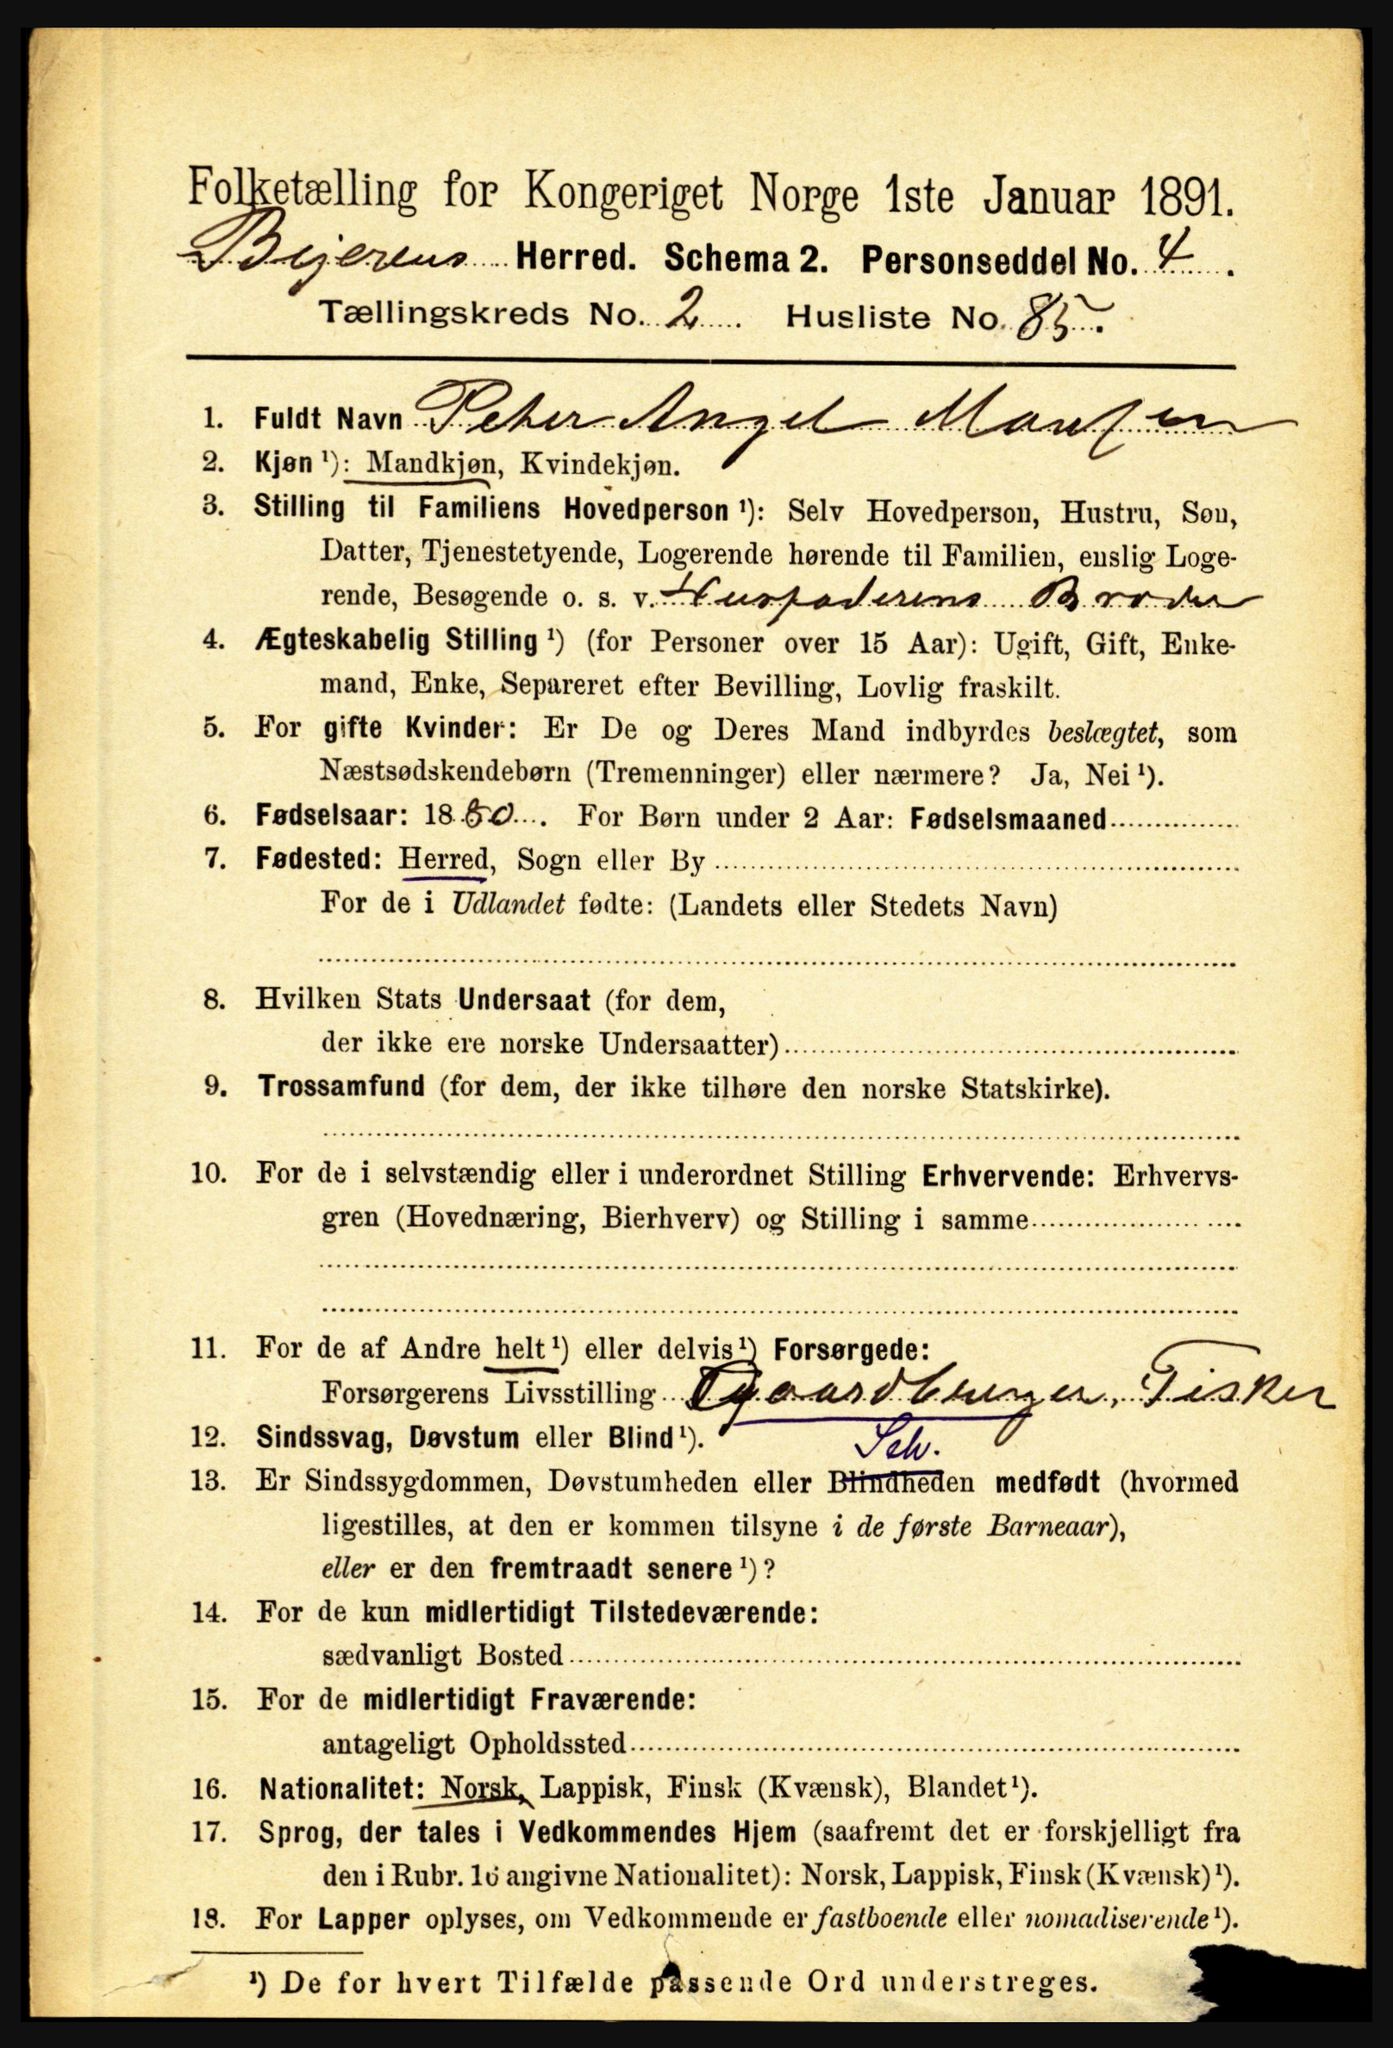 Folketælling for Kongeriget Norge 1ste Januar 1891.
Bejerens Herred. Schema 2. Personseddel No. 4.
Tællingskreds No. 2. Husliste No. 85.
1. Fuldt Navn Peter Angel
2. Kjøn ¹): Mandkjøn, Kvindekjøn.
3. Stilling til Familiens Hovedperson ¹): Selv Hovedperson, Hustru, Søn,
Datter, Tjenestetyende, Logerende hørende til Familien, enslig Loge-
rende, Besøgende o. s. v. Husfaderens Broder
4. Ægteskabelig Stilling ¹) (for Personer over 15 Aar): Ugift, Gift, Enke-
mand, Enke, Separeret efter Bevilling, Lovlig fraskilt.
5. For gifte Kvinder: Er De og Deres Mand indbyrdes beslægtet, som
Næstsødskendebørn (Tremenninger) eller nærmere? Ja, Nei ¹).
6. Fødselsaar: 1880. For Børn under 2 Aar: Fødselsmaaned
7. Fødested: Herred, Sogn eller By
For de i Udlandet fødte: (Landets eller Stedets Navn)
8. Hvilken Stats Undersaat (for dem,
der ikke ere norske Undersaatter)
9. Trossamfund (for dem, der ikke tilhøre den norske Statskirke).
10. For de i selvstændig eller i underordnet Stilling Erhvervende: Erhvervs-
gren (Hovednæring, Bierhverv) og Stilling i samme
11. For de af Andre helt ¹) eller delvis ¹) Forsørgede:
Forsørgerens Livsstilling Gaardbruger, Fisker
12. Sindssvag, Døvstum eller Blind ¹). Selv.
13. Er Sindssygdommen, Døvstumheden eller Blindheden medfødt (hvormed
ligestilles, at den er kommen tilsyne i de første Barneaar),
eller er den fremtraadt senere ¹)?
14. For de kun midlertidigt Tilstedeværende:
sædvanligt Bosted
15. For de midlertidigt Fraværende:
antageligt Opholdssted
16. Nationalitet: Norsk, Lappisk, Finsk (Kvænsk), Blandet ¹).
17. Sprog, der tales i Vedkommendes Hjem (saafremt det er forskjelligt fra
den i Rubr. 16 angivne Nationalitet): Norsk, Lappisk, Finsk (Kvænsk) ¹).
18. For Lapper oplyses, om Vedkommende er fastboende eller nomadiserende ¹).
¹) De for hvert Tilfælde passende Ord understreges.